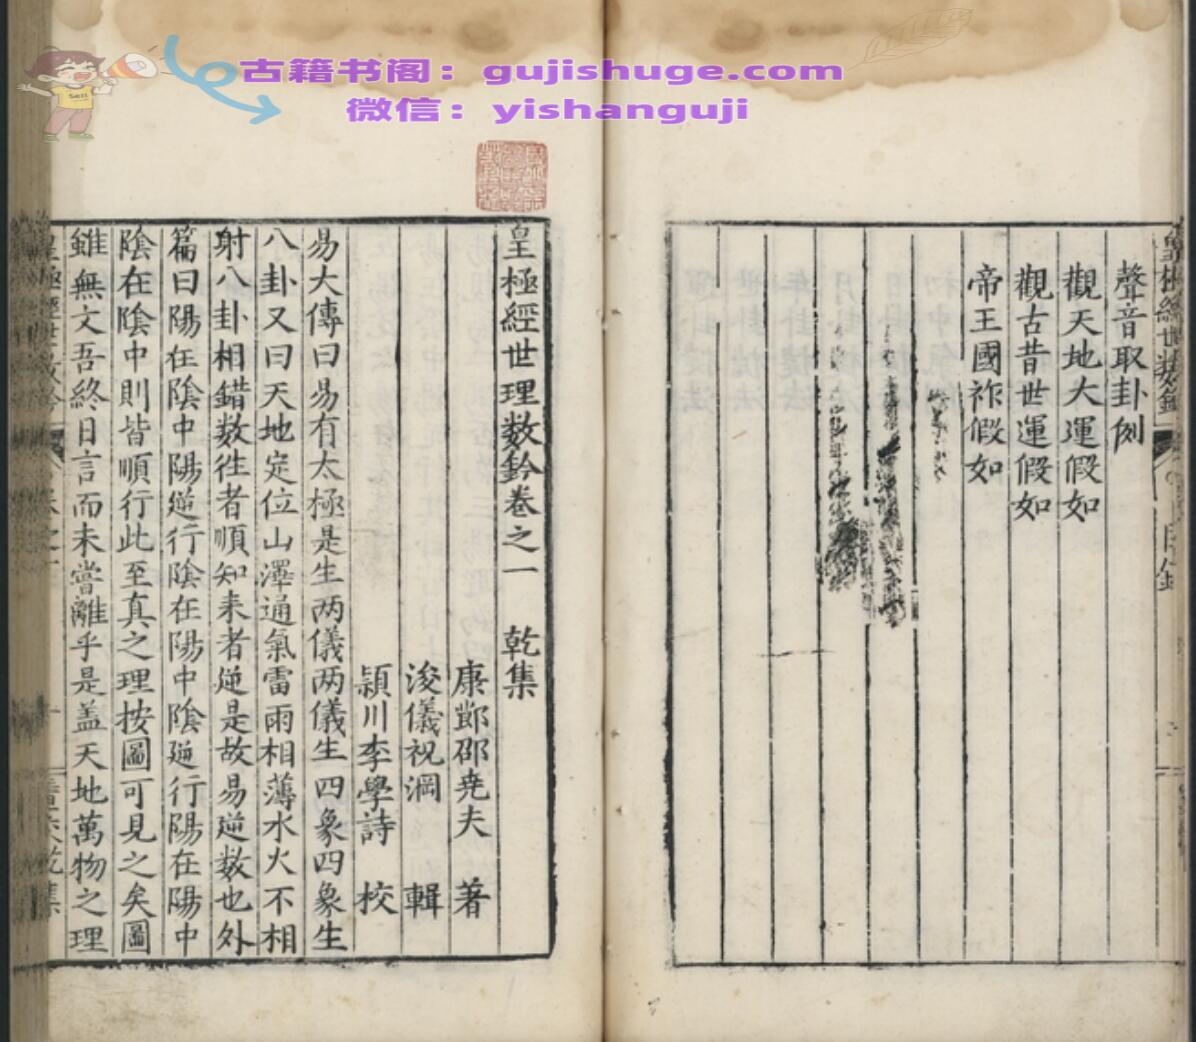 古籍书阁：gujishuge.com
微信：yishanguji
聲音取卦例
觀天地大運假如
觀古昔世運假如
帝王國祚假如
皇極經世理数鈐卷之一 乾集
康鄷邵堯夫 著
浚儀祝澗 輯
頴川李學詩 校
易大傳曰易有太極是生两儀两儀生四象四象生
八卦又曰天地定位山澤通氣雷雨相薄水火不相
射八卦相錯数徃者順知来者逆是故易逆数也外
篇曰陽在陰中陽逆行陰在陽中陰逆行陽在陽中
陰在陰中則皆順行此至真之理按圖可見之矣圖
雖無文吾終日言而未嘗離乎是盖天地萬物之理